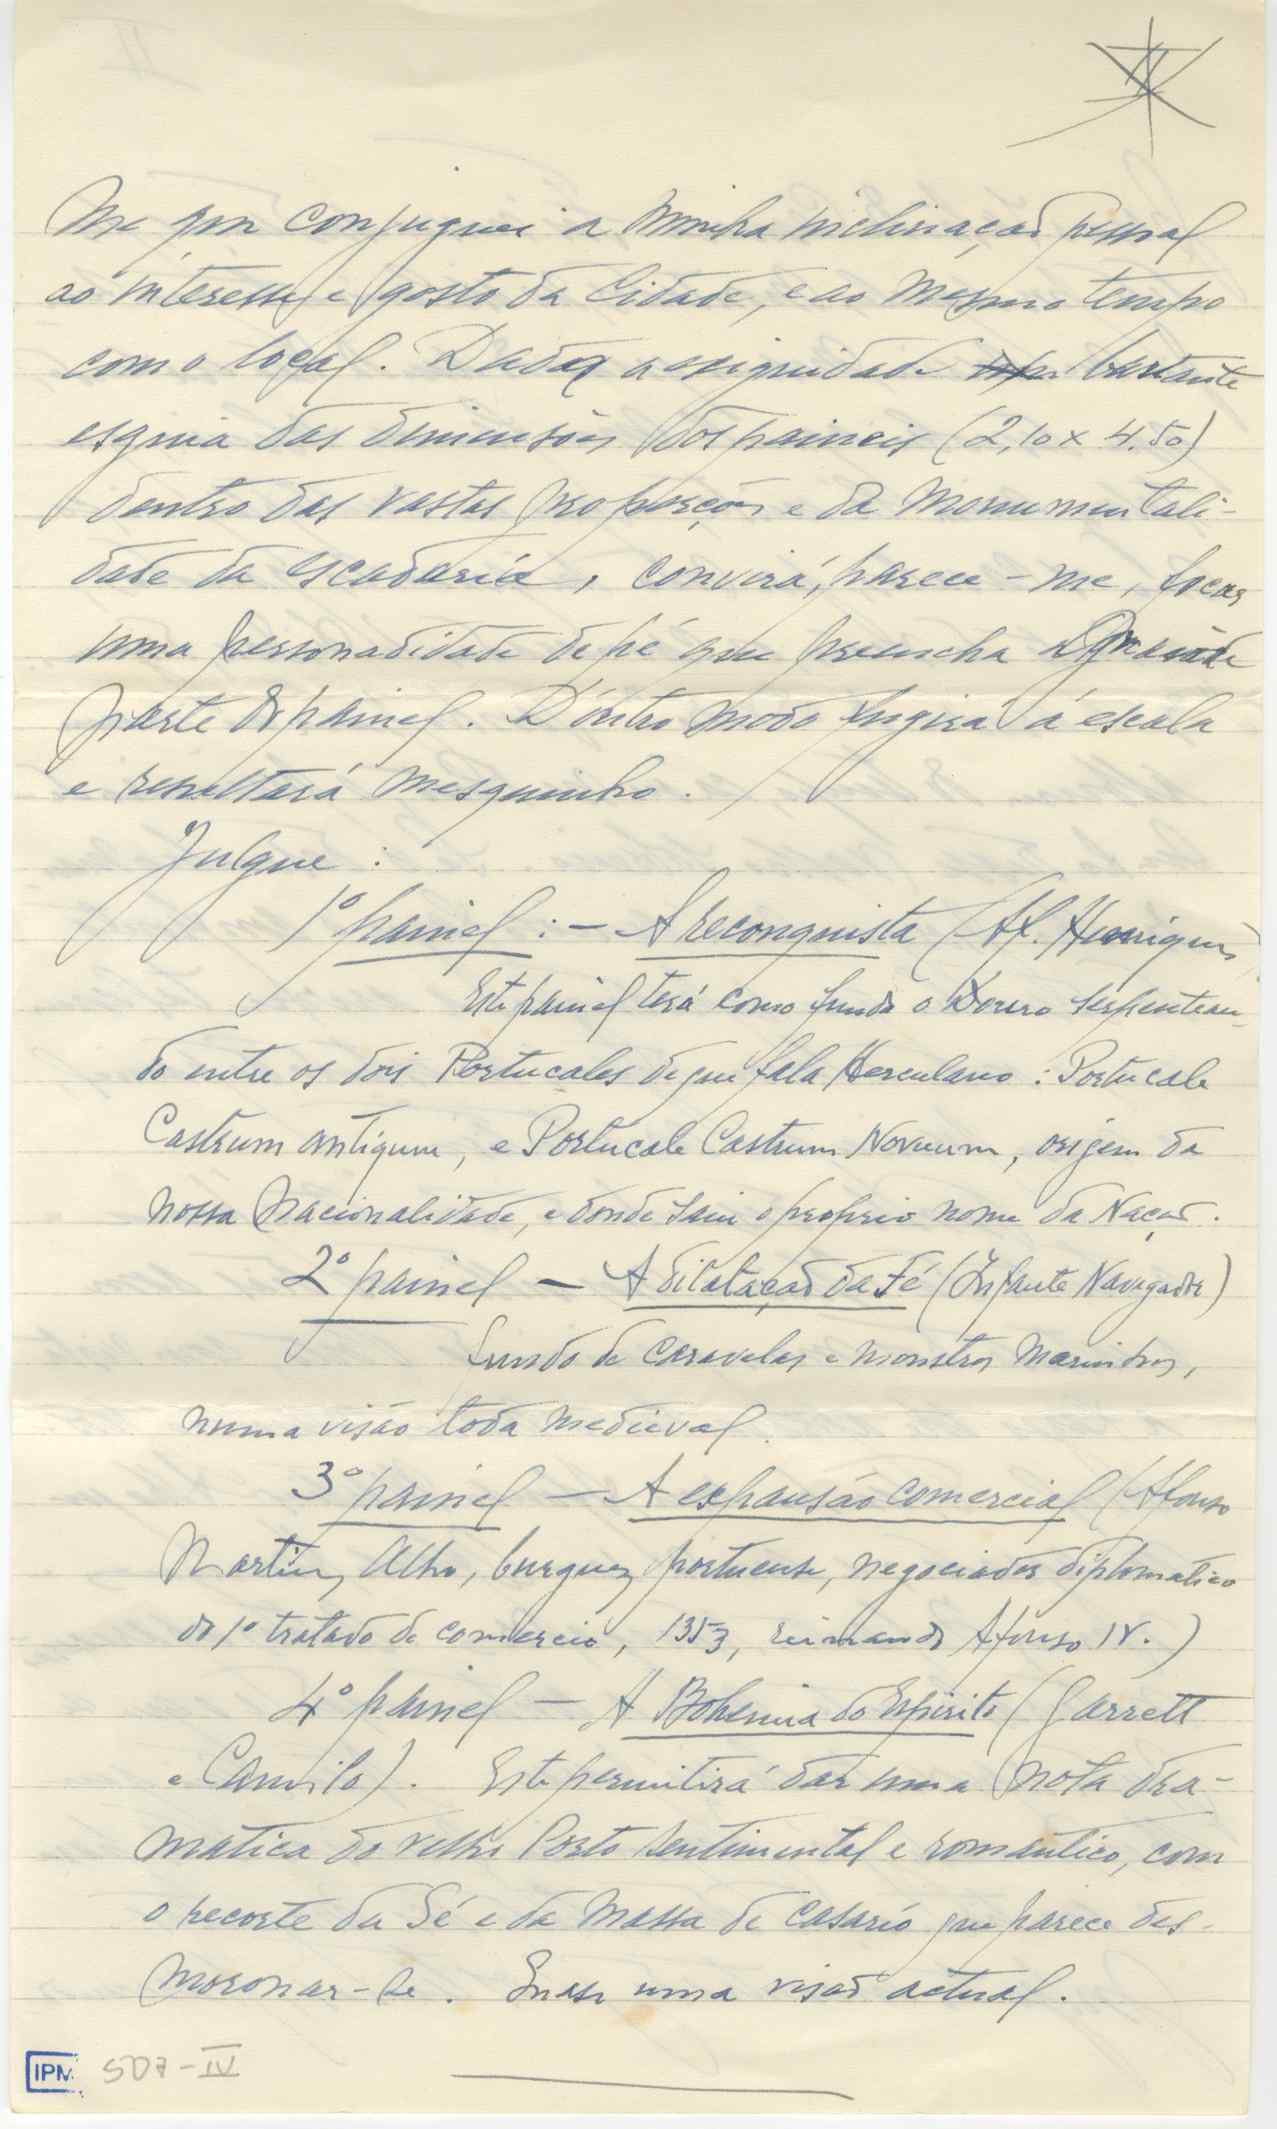 me que conjuguei a minha inclinação pessoal
ao interesse e gosto da Cidade, e ao mesmo tempo
com o local. Dada a exiguidade bastante
esguia das dimensões dos paineis (2,10 x 4.50)
dentro das vastas proporções e da monumentali-
dade da escadaria, convirá, parece-me, focar
uma personadidade de pé que preencha a grande
parte do painel. D'outro modo fugirá á escala
e resultará mesquinho.
Julgue :
1º painel : - A reconquista (Af. Henriques)
Este painel terá como fundo o Douro serpentean-
do entre os dois Portucales de que fala Herculano : Portucale
Castrum antiquum, e Portucale Castrum Novuum, origem da
nossa Nacionalidade, e donde saiu o proprio nome da Nação.
2º painel - A dilatação da Fé (Infante Navegador)
fundo de caravelas e monstros marinhos,
numa visão toda medieval.
3º painel - A expansão comercial (Afonso
Martins Alho, burguez portuense, negociador diplomatico
do 1º tratado de comercio, 1353, reinando Afonso IV.)
4º painel - A Bohemia do Espirito (Garrett
e Camilo). Este permitirá dar uma nota dra-
matica do velho Porto sentimental e romantico, com
o recorte da Sé e da massa de casario que parece des-
moronar-se. Quase uma visão actual.
IPM
SD7-IV